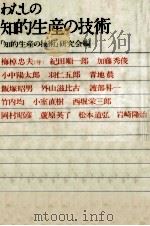 わたしの
知的生産の技術
「知的生産の技術」研究会編
梅棹忠夫 紀田順一郎 加藤秀俊
小中陽太郎 羽仁五郎 青地晨
飯塚昭男 外山滋比古 渡部昇一
竹内均 小室直樹 西堀栄三郎
岡村昭彦 蘆原英了 松本道弘 岩崎隆治